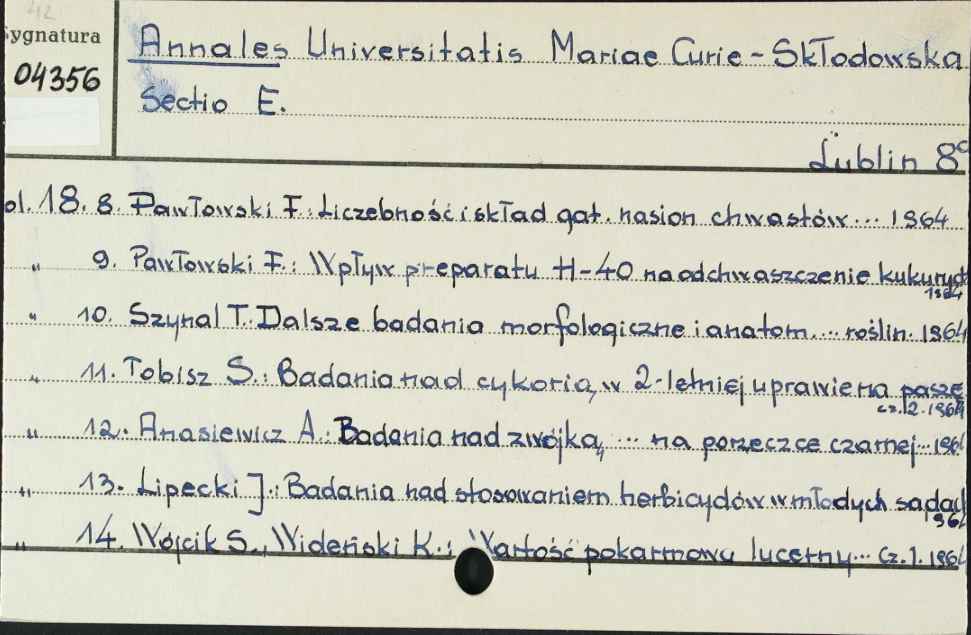 42
Sygnatura
04356
Annales Universitatis Mariae Curie - Skłodowska
Sectio E.
Lublin 8°
ol. 18. 8. Pawłowski F.: Liczebność i skład gat. nasion chwastów... 1964
„ 9. Pawłowski F.: Wpływ preparatu H-40 na odchwaszczenie kukuryd
1964
„ 10. Szynal T. Dalsze badania morfologiczne i anatom. ... roślin. 1964
„ 11. Tobisz S.: Badania nad cykorią w 2-letniej uprawie na paszę
cz. 2. 1964
„ 12. Anasiewicz A.: Badania nad zwójką, ... na porzeczce czarnej... 196
„ 13. Lipecki J.: Badania nad stosowaniem herbicydów w młodych sadach
964
„ 14. Wójcik S., Wideński K.: Wartość pokarmowa lucerny... cz. 1. 1964